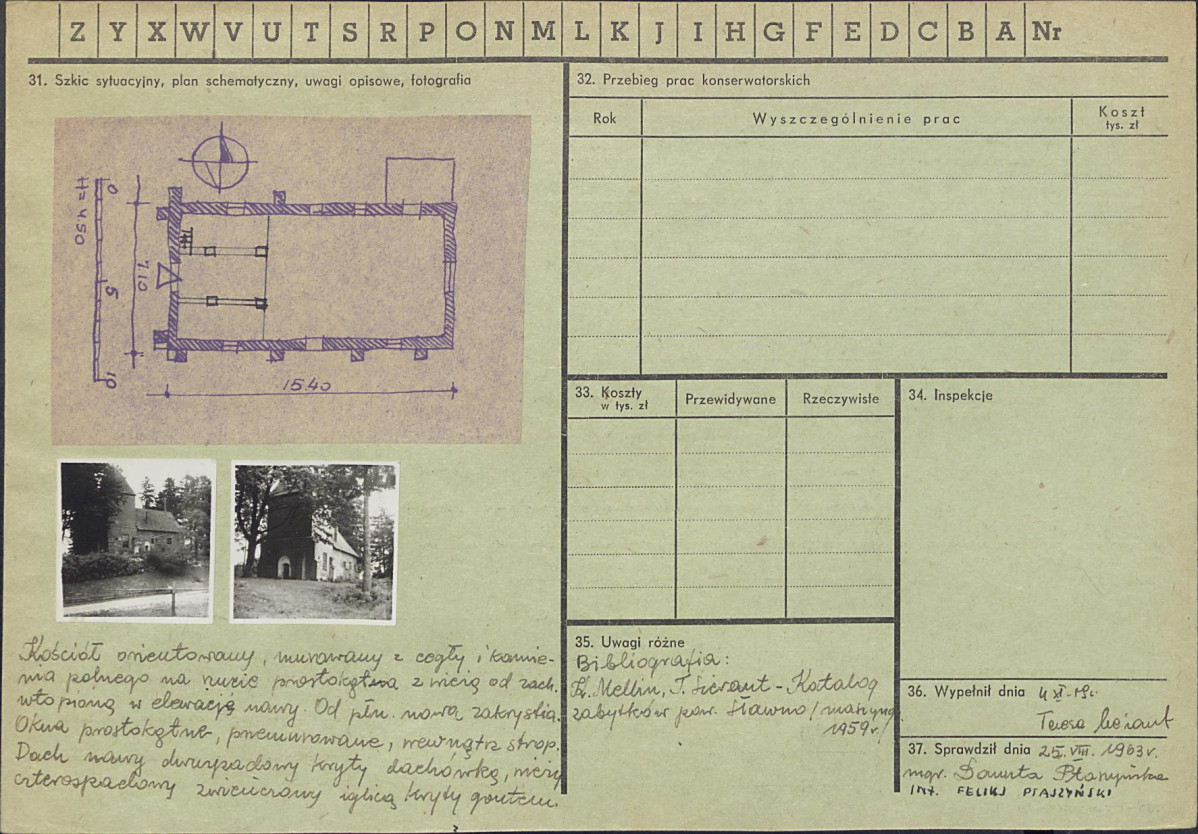 Z Y X W V U T S R P O N M L K J I H G F E D C B A Nr
31. Szkic sytuacyjny, plan schematyczny, uwagi opisowe, fotografia
H=4.50
0 5 10
7.10
15.40
Kościół orientowany, murowany z cegły i kamie-
nia polnego na rzucie prostokąta z wieżą od zach.
wtopioną w elewację nawy. Od płn. nową zakrystią.
Okna prostokątne, przemurowane, wewnątrz strop.
Dach nawy dwuspadowy kryty dachówką, wieży
czterospadowy zwieńczony iglicą kryty gontem.
32. Przebieg prac konserwatorskich
Rok Wyszczególnienie prac Koszt
tys. zł
33. Koszty
w tys. zł
Przewidywane Rzeczywiste
34. Inspekcje
35. Uwagi różne
Bibliografia:
Mellin, T. Sierant - Katalog
zabytków pow. Sławno /maszyn
1959r./
36. Wypełnił dnia
Teresa
37. Sprawdził dnia 25.VIII.1963r.
mgr. Danuta
INŻ. FELIKS PTASZYŃSKI